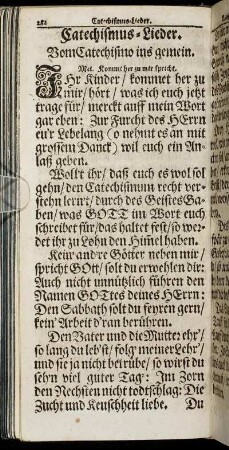 282 Catechismus-Lieder.
Catechismus-Lieder.
Vom Catechismo ins gemein.
Mel. Kommt her zu mir spricht.
IHr Kinder / kommet her zu
mir / hört / was ich euch jetzt
trage für / merckt auff mein Wort
gar eben: Zur Furcht des HErrn
eu'r Lebelang (o nehmt es an mit
grossem Danck) wil euch ein An-
laß geben.
Wolt ihr / daß euch es wol sol
gehn / den Catechismum recht ver-
stehn lernt / durch des Geistes Ga-
ben / was GOTT im Wort euch
schreibet für / das haltet fest / so wer-
det ihr zu Lohn den Himel haben.
Kein' andre Götter neben mir /
spricht GOtt / solt du erwehlen dir:
Auch nicht unnützlich führen den
Namen GOttes deines HErrn:
Den Sabbath solt du feyren gern /
kein' Arbeit d'ran berühren.
Den Vater und die Mutter ehr' /
so lang du leb'st / folg' meiner Lehr' /
und sie ja nicht betrübe / so wirst du
seh'n viel guter Tag: Im Zorn
den Nechsten nicht todtschlag: Die
Zucht und Keuschheit liebe. Du